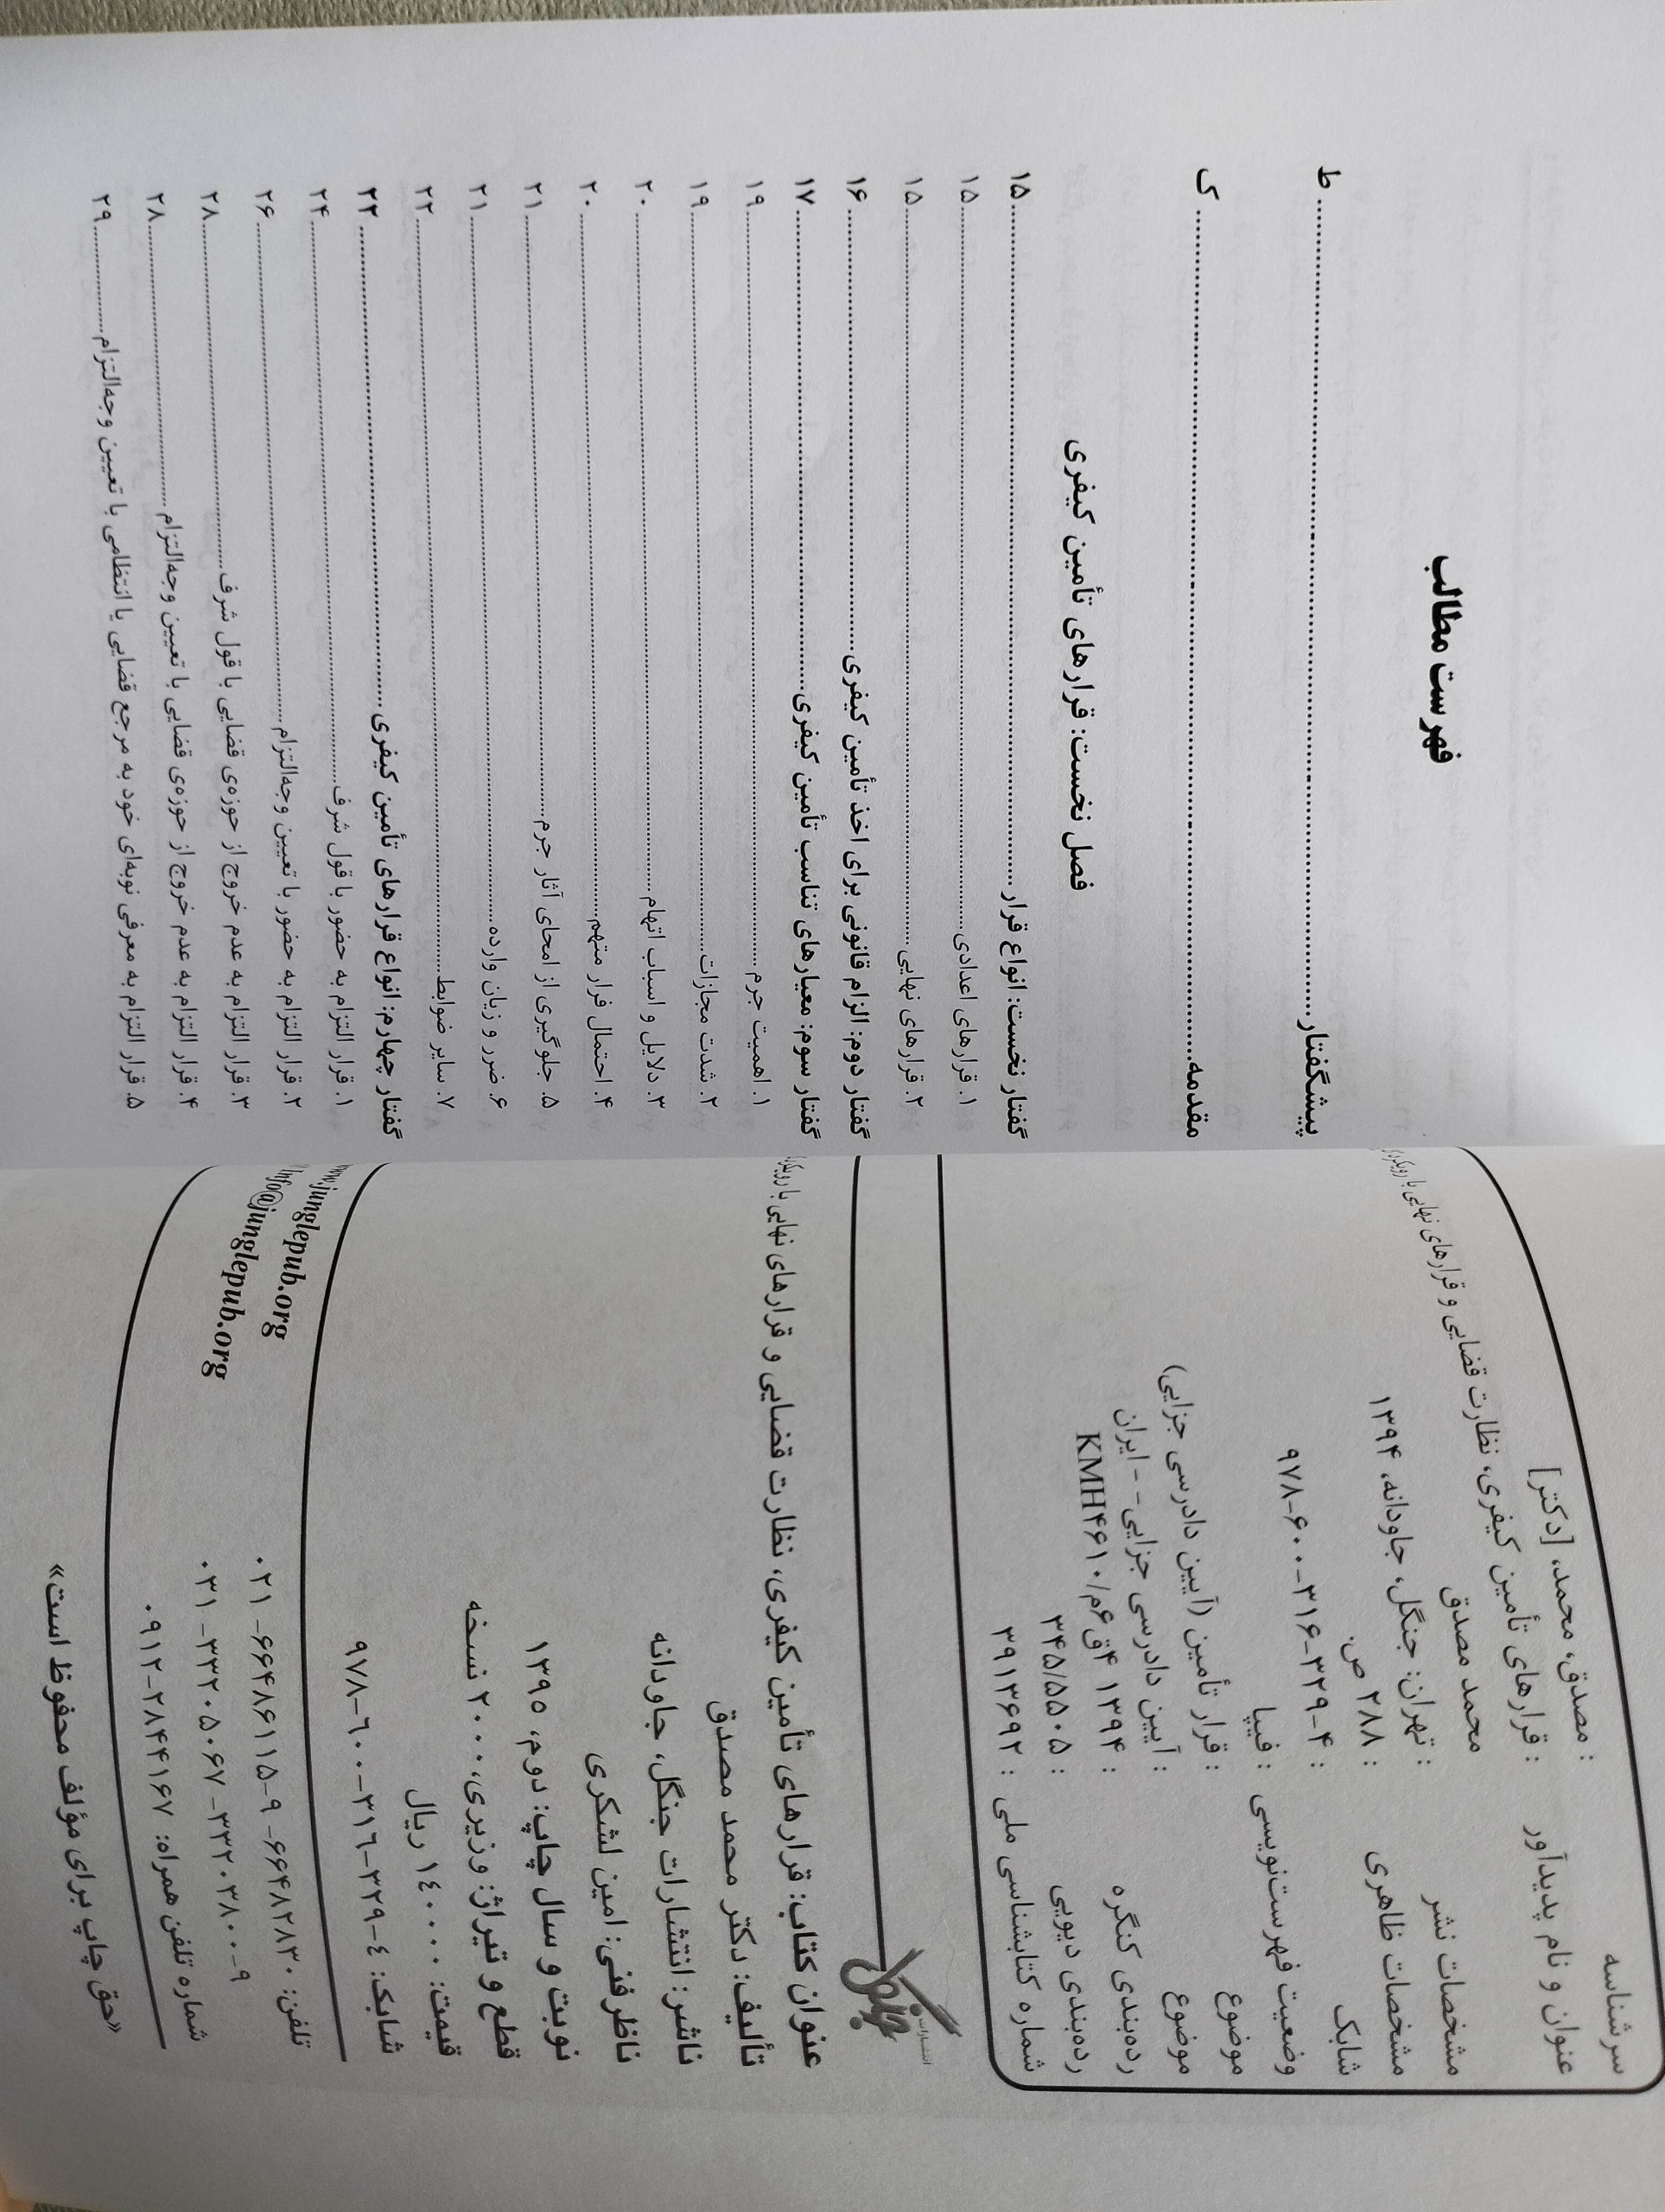 سرشناسه : مصدق، محمد، [دکتر]
عنوان و نام پدیدآور : قرارهای تأمین کیفری، نظارت قضایی و قرارهای نهایی با
محمد مصدق
مشخصات نشر : تهران: جنگل، جاودانه، ۱۳۹۴
مشخصات ظاهری : ۲۸۸ ص.
شابک : ۹۷۸-۶۰۰-۳۱۶-۳۲۹-۴
وضعیت فهرست‌نویسی : فیپا
موضوع : قرار تأمین (آیین دادرسی جزایی)
موضوع : آیین دادرسی جزایی - - ایران
رده‌بندی کنگره : ۱۳۹۴ ۴ق۶م/KMH۴۶۱۰
رده‌بندی دیویی : ۳۴۵/۵۵۰۵
شماره کتابشناسی ملی : ۳۹۱۳۶۹۲
انتشارات
جنگل
عنوان کتاب: قرارهای تأمین کیفری، نظارت قضایی و قرارهای نهایی با
تألیف: دکتر محمد مصدق
ناشر: انتشارات جنگل، جاودانه
ناظر فنی: امین لشکری
نوبت و سال چاپ: دوم، ۱۳۹۵
قطع و تیراژ: وزیری، ۲۰۰۰ نسخه
قیمت: ۱۴۰۰۰۰ ریال
شابک: ۴-۳۲۹-۳۱۶-۶۰۰-۹۷۸
www.junglepub.org
Info@junglepub.org
تلفن: ۶۶۴۸۲۸۳۰ -۶۶۴۸۶۱۱۵-۹ -۰۲۱
۳۳۲۰۳۸۰۰-۹ -۳۳۲۰۵۰۶۷ -۰۳۱
شماره تلفن همراه: ۲۸۴۴۱۶۷-۰۹۱۲
«حق چاپ برای مؤلف محفوظ است»
فهرست مطالب
پیشگفتار ........ ط
مقدمه ........ ک
فصل نخست: قرارهای تأمین کیفری
گفتار نخست: انواع قرار ........ ۱۵
۱. قرارهای اعدادی ........ ۱۵
۲. قرارهای نهایی ........ ۱۵
گفتار دوم: الزام قانونی برای اخذ تأمین کیفری ........ ۱۶
گفتار سوم: معیارهای تناسب تأمین کیفری ........ ۱۷
۱. اهمیت جرم ........ ۱۹
۲. شدت مجازات ........ ۱۹
۳. دلایل و اسباب اتهام ........ ۲۰
۴. احتمال فرار متهم ........ ۲۰
۵. جلوگیری از امحای آثار جرم ........ ۲۱
۶. ضرر و زیان وارده ........ ۲۱
۷. سایر ضوابط ........ ۲۲
گفتار چهارم: انواع قرارهای تأمین کیفری ........ ۲۳
۱. قرار التزام به حضور با قول شرف ........ ۲۴
۲. قرار التزام به حضور با تعیین وجه‌التزام ........ ۲۶
۳. قرار التزام به عدم خروج از حوزه‌ی قضایی با قول شرف ........ ۲۸
۴. قرار التزام به عدم خروج از حوزه‌ی قضایی با تعیین وجه‌التزام ........ ۲۸
۵. قرار التزام به معرفی نوبه‌ای خود به مرجع قضایی یا انتظامی با تعیین وجه‌التزام ........ ۲۹